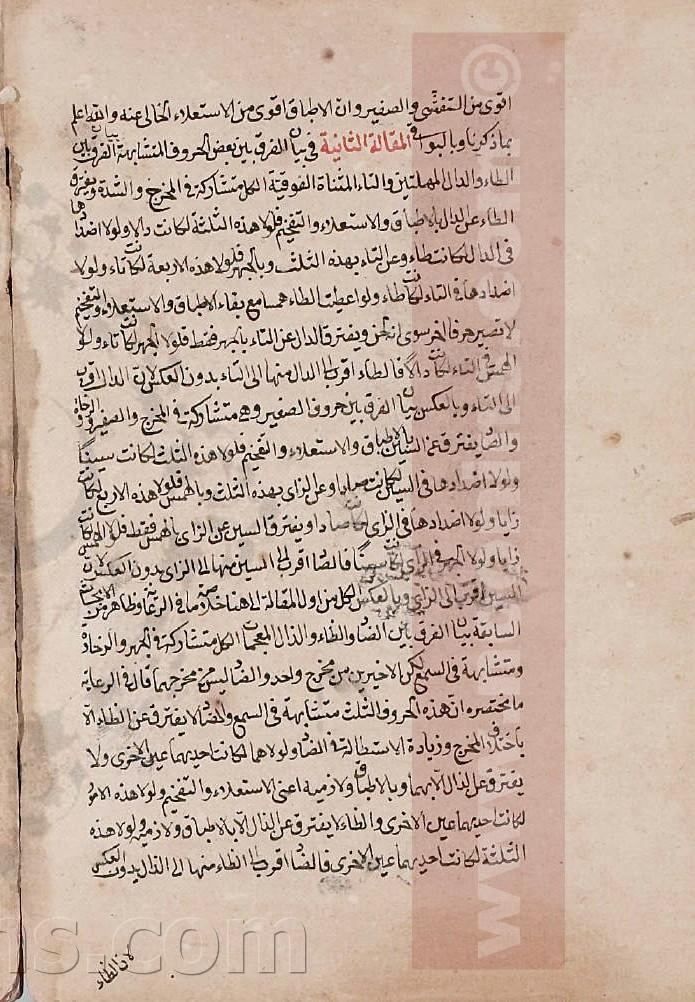 اقوى من التفشى والصفير وان الاطباق اقوى من الاستعلاء الخالى عنه والله اعلم
بما ذكرنا وبالبواقى المقالة الثانية فى بيان الفرق بين بعض الحروف المتشابهة الفرق بين
الطاء والدال المهملتين والتاء المثناة الفوقية الكل متشاركة فى المخرج والشدة
الطاء عن الدال بالاطباق والاستعلاء والتفخيم فلولا هذه الثلثة لكانت دالا ولولا اضدادها
فى الدال لكانت طاء وعن التاء بهذه الثلث وبالجهر فلولا هذه الاربعة لكانت تاء ولولا
اضدادها فى التاء لكانت طاء ولو اعطيت الطاء همسا مع بقاء الاطباق والاستعلاء والتفخيم
لا تصير حرفا آخر سوى ويفترق الدال عن التاء بالجهر فقط فلولا الجهر لكانت تاء ولولا
الهمس فى التاء لكانت دالا فالطاء اقرب الى الدال منها الى التاء بدون العكس لان الدال اقرب
الى التاء وبالعكس بيان الفرق بين حروف الصفير وهى متشاركة فى المخرج والصفير والرخاوة
والصاد يفترق عن السين بالاطباق والاستعلاء والتفخيم فلولا هذه الثلث لكانت سينا
ولولا اضدادها فى السين لكانت صادا وعن الزاى بهذه الثلث وبالهمس فلولا هذه الاربع لكانت
زايا ولولا اضدادها فى الزاى لكانت صادا ويفترق السين عن الزاى بالهمس فقط فلولا الهمس لكانت
زايا ولولا الجهر فى الزاى لكانت سينا فالصاد اقرب الى السين منها الى الزاى بدون العكس لان
السين اقرب الى الزاى وبالعكس الكل من اول المقالة الى هنا خلاصة ما فى الرعاية وظاهر من الابحاث
السابقة بيان الفرق بين الضاد والظاء والذال المعجمات الكل متشاركة فى الجهر والرخاوة
ومتشابهة فى السمع لكن الاخيرين من مخرج واحد والضاد ليس من مخرجهما قال فى الرعاية
ما مختصره ان هذه الحروف الثلث متشابهة فى السمع والضاد لا يفترق عن الظاء الا
باختلاف المخرج وزيادة الاستطالة فى الضاد ولولاهما لكانت احديهما عين الاخرى ولا
يفترق عن الذال الا بهما وبالاطباق ولازميه اعنى الاستعلاء والتفخيم ولولا هذه الامور
لكانت احديهما عين الاخرى والظاء لا يفترق عن الذال الا بالاطباق ولازميه ولولا هذه
الثلثة لكانت احديهما عين الاخرى فالضاد اقرب الى الظاء منها الى الذال بدون العكس
لان الظاء